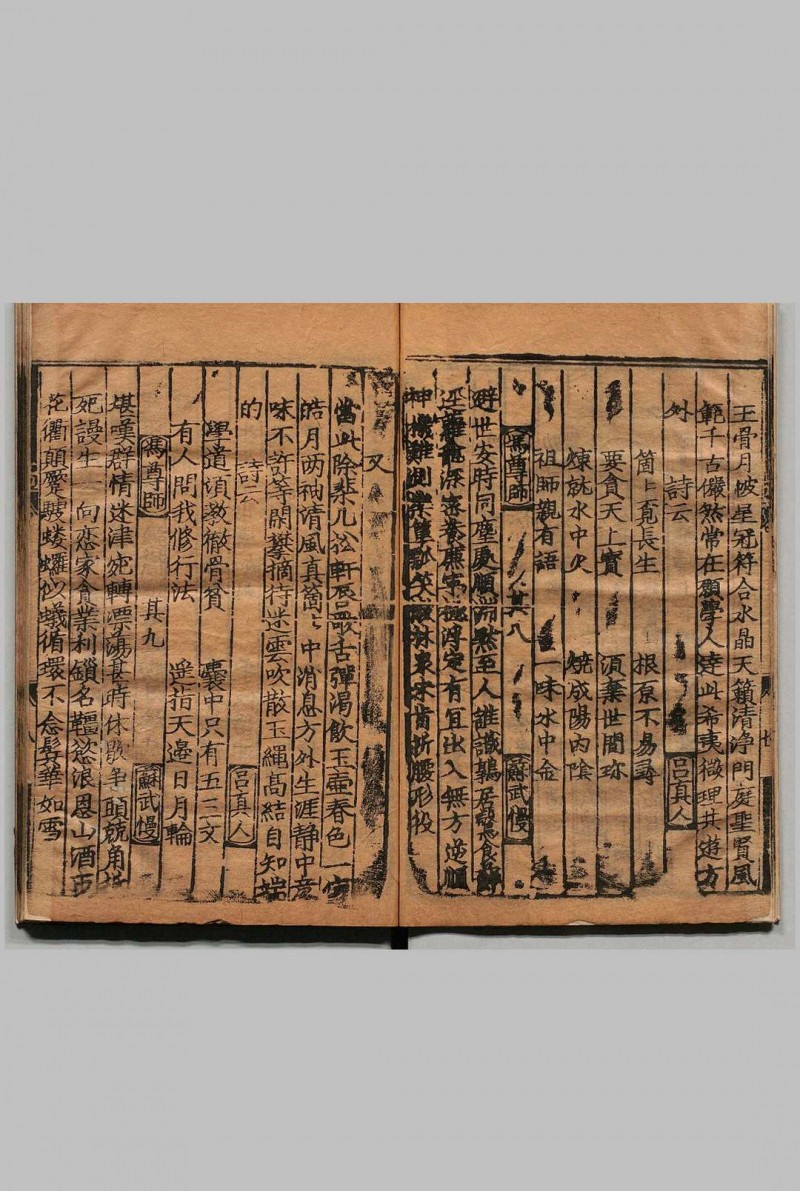 玉骨月帔星冠符合水晶天籟清淨門庭聖賢風
範千古儼然常在願學人達此希夷微理共遊方
外 詩云 呂真人
箇々覓長生 根原不易尋
要貪天上寶 須棄世間珎
煉就水中火 燒成陽內陰
祖師親有語 一味水中金
馮尊師 其八 蘇武慢
避世安時同塵處順 至人誰識鶉居鷇食
深 有 出入無方逆順
神機難測 笑 折腰形役
又
當此除 几松軒 歌舌彈渴飲玉壺春色一字
皓月两袖清風真箇々中消息方外生涯静中意
味不許等閑攀摘待迷雲吹散玉繩高結自知端
的 詩云 呂真人
學道須教徹骨貧 囊中只有五三文
有人問我修行法 遥指天邉日月輪
馮尊師 其九 蘇武慢
堪嘆群情迷津宛轉漂蕩甚時休歇爭頭競角
死謾生一向恋家貪業利鎖名韁慾浪恩山酒
花衢顛蹷 蟻循環不念髩華如雪